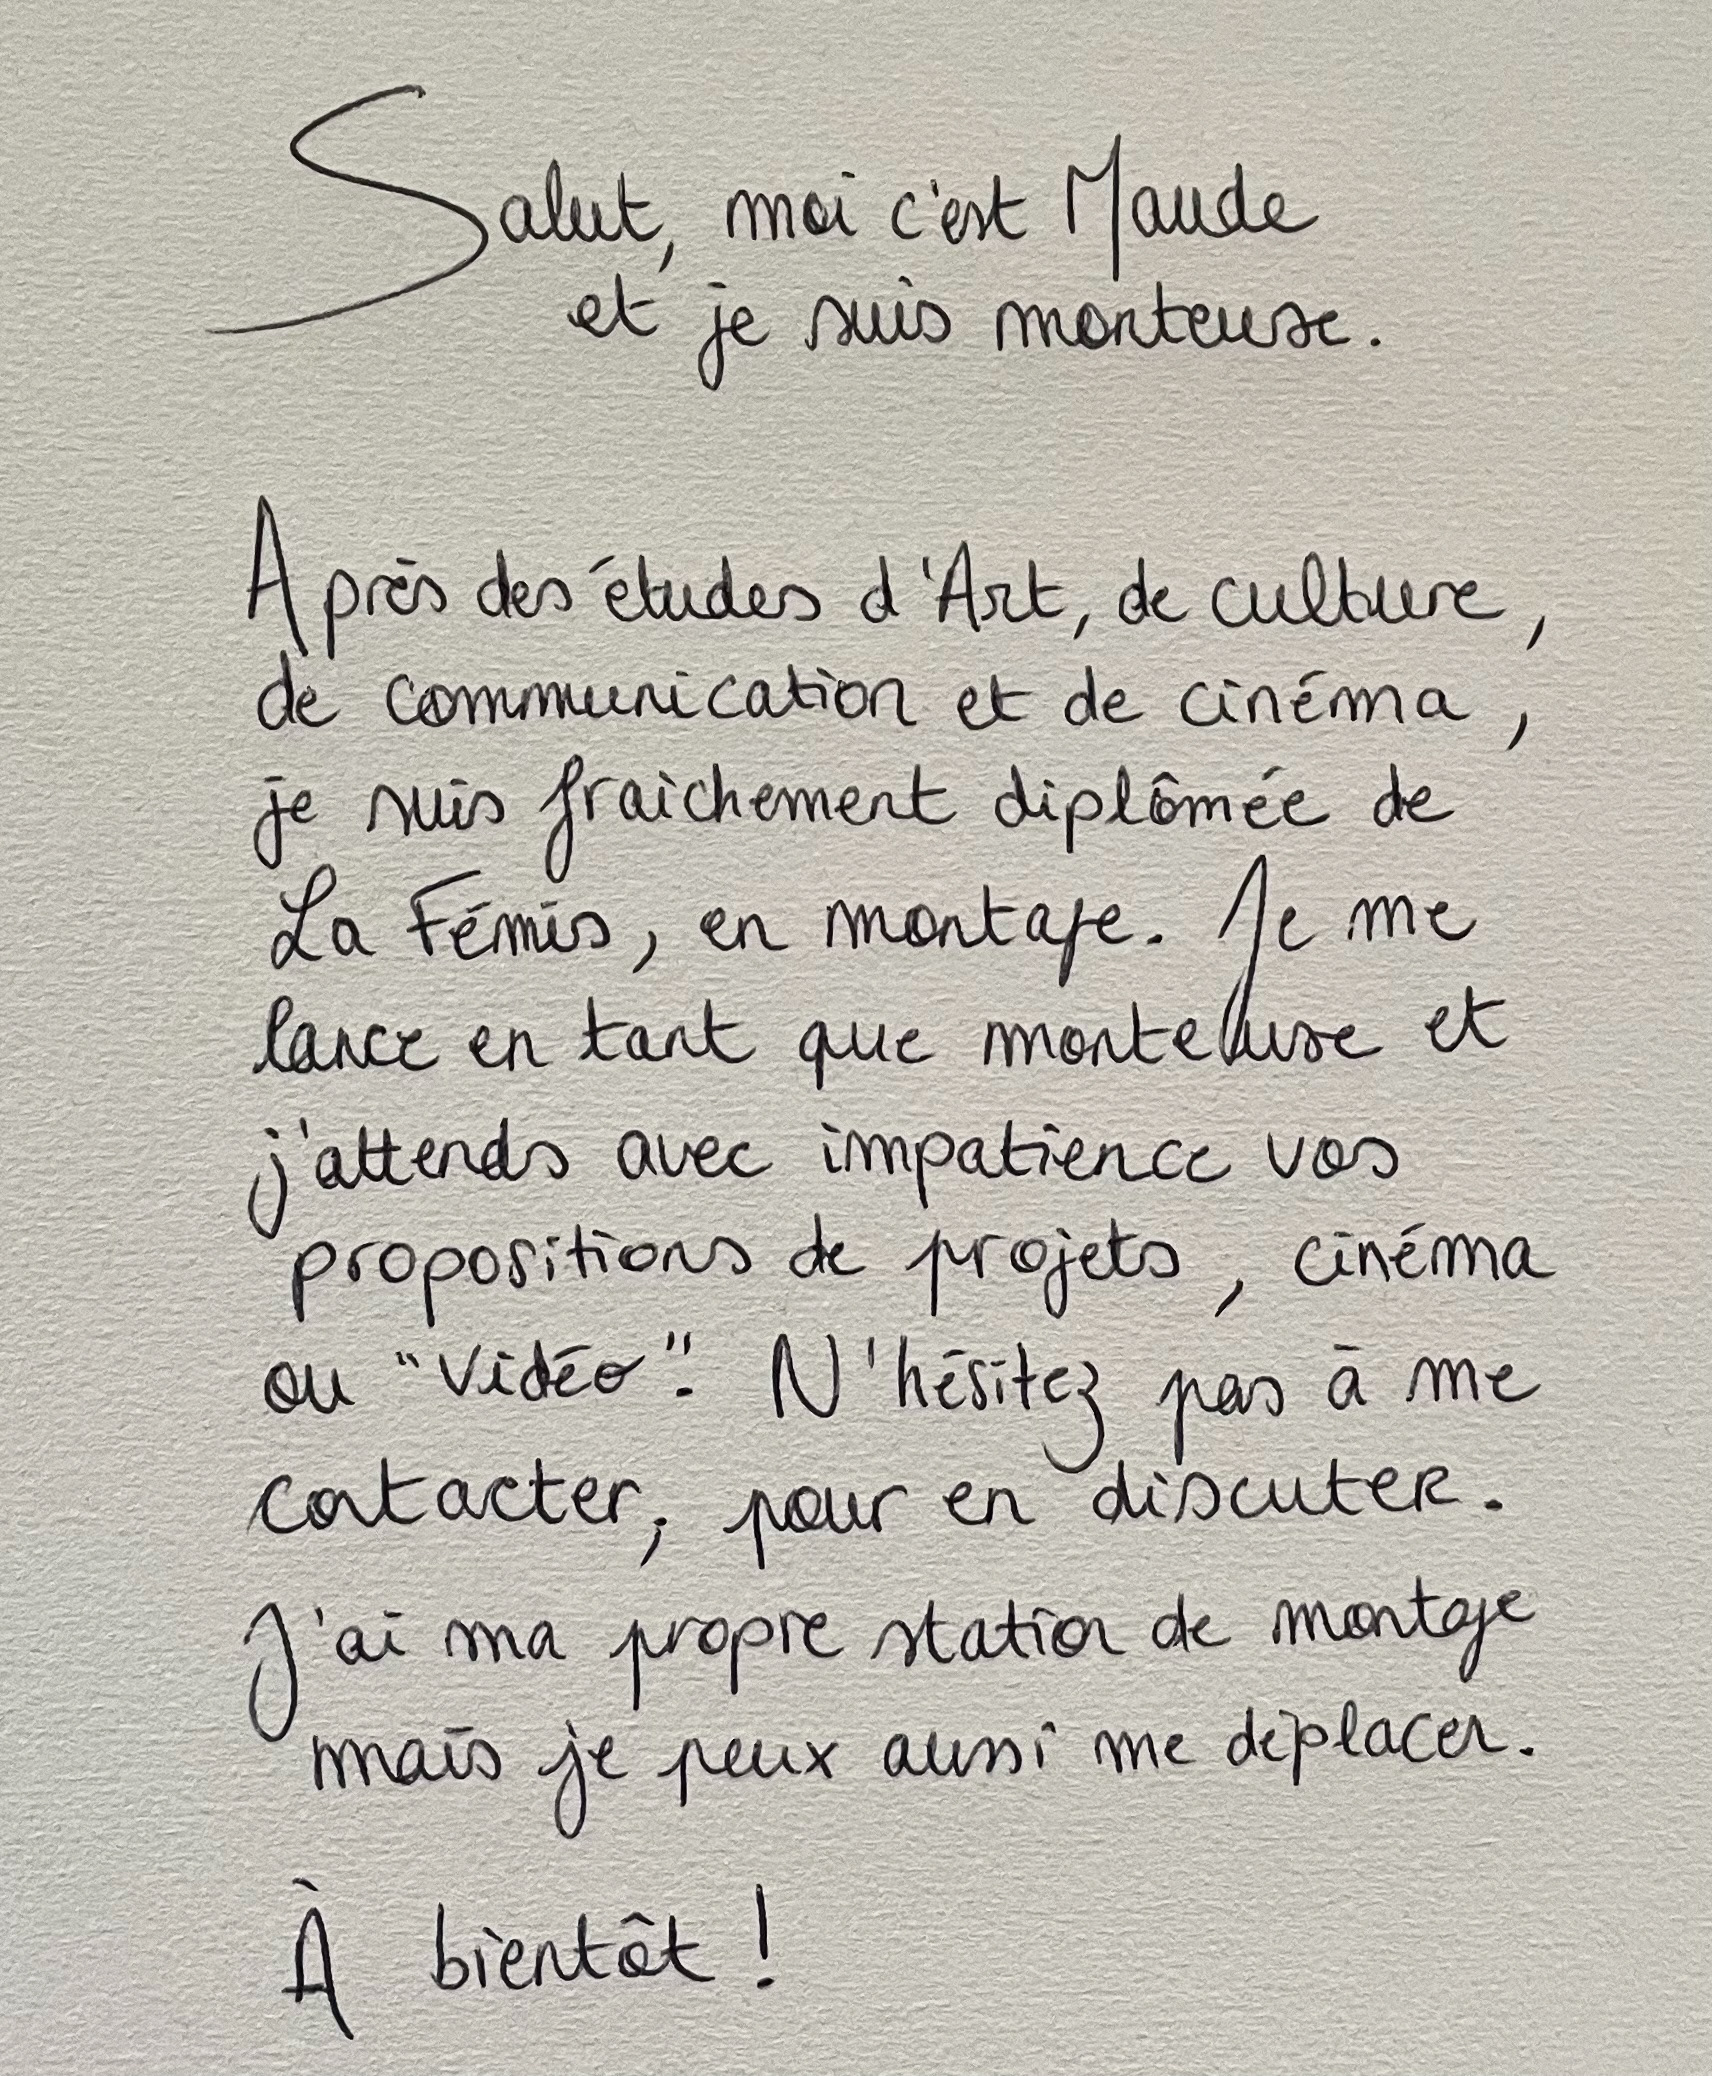 Salut, moi c'est Maude
et je suis monteuse.
Après des études d'Art, de culture,
de communication et de cinéma,
je suis fraichement diplômée de
La Fémis, en montage. Je me
lance en tant que monteuse et
j'attends avec impatience vos
propositions de projets, cinéma
ou "vidéo". N'hésitez pas à me
contacter, pour en discuter.
J'ai ma propre station de montage
mais je peux aussi me déplacer.
À bientôt !